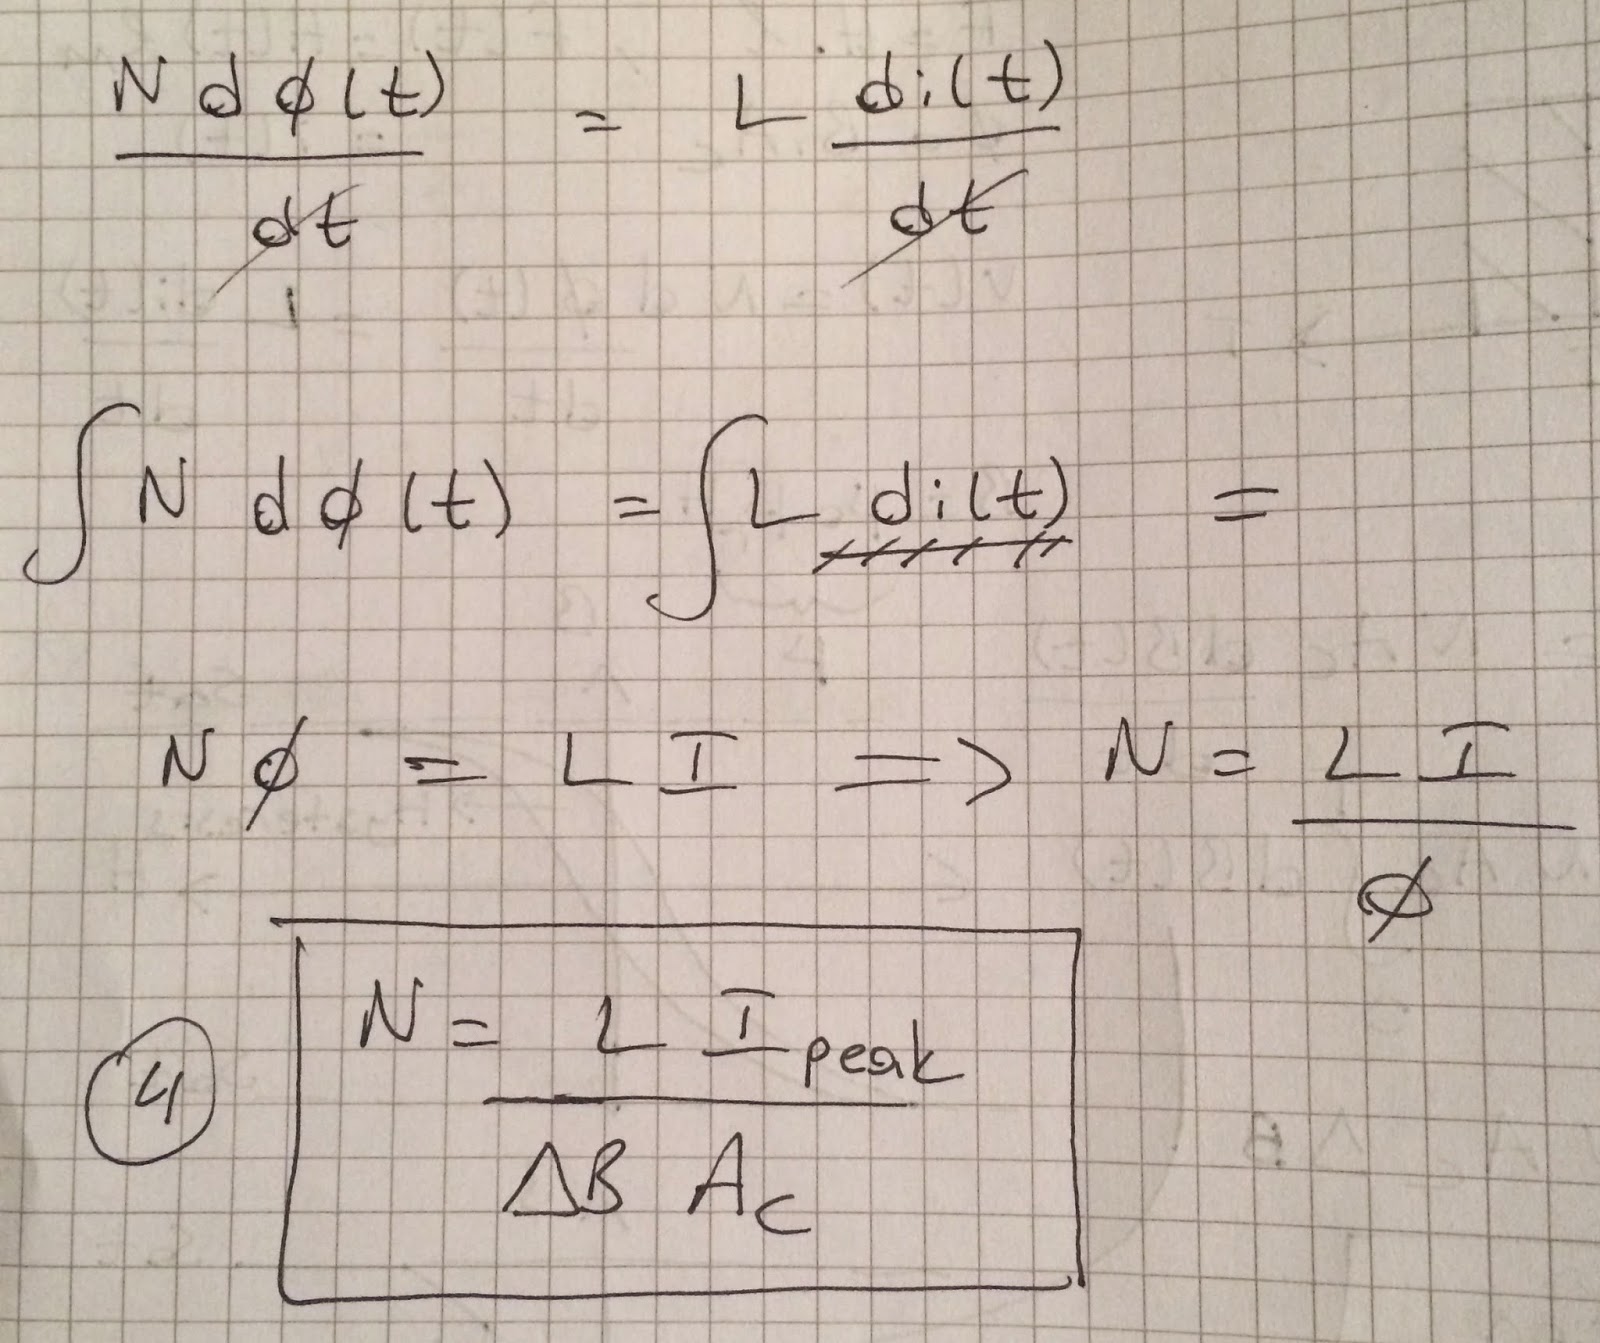 N dϕ(t) / dt = L di(t) / dt
∫ N dϕ(t) = ∫ L di(t) =
Nϕ = L I => N = L I / ϕ
④ N = L I peak / ΔB Ac